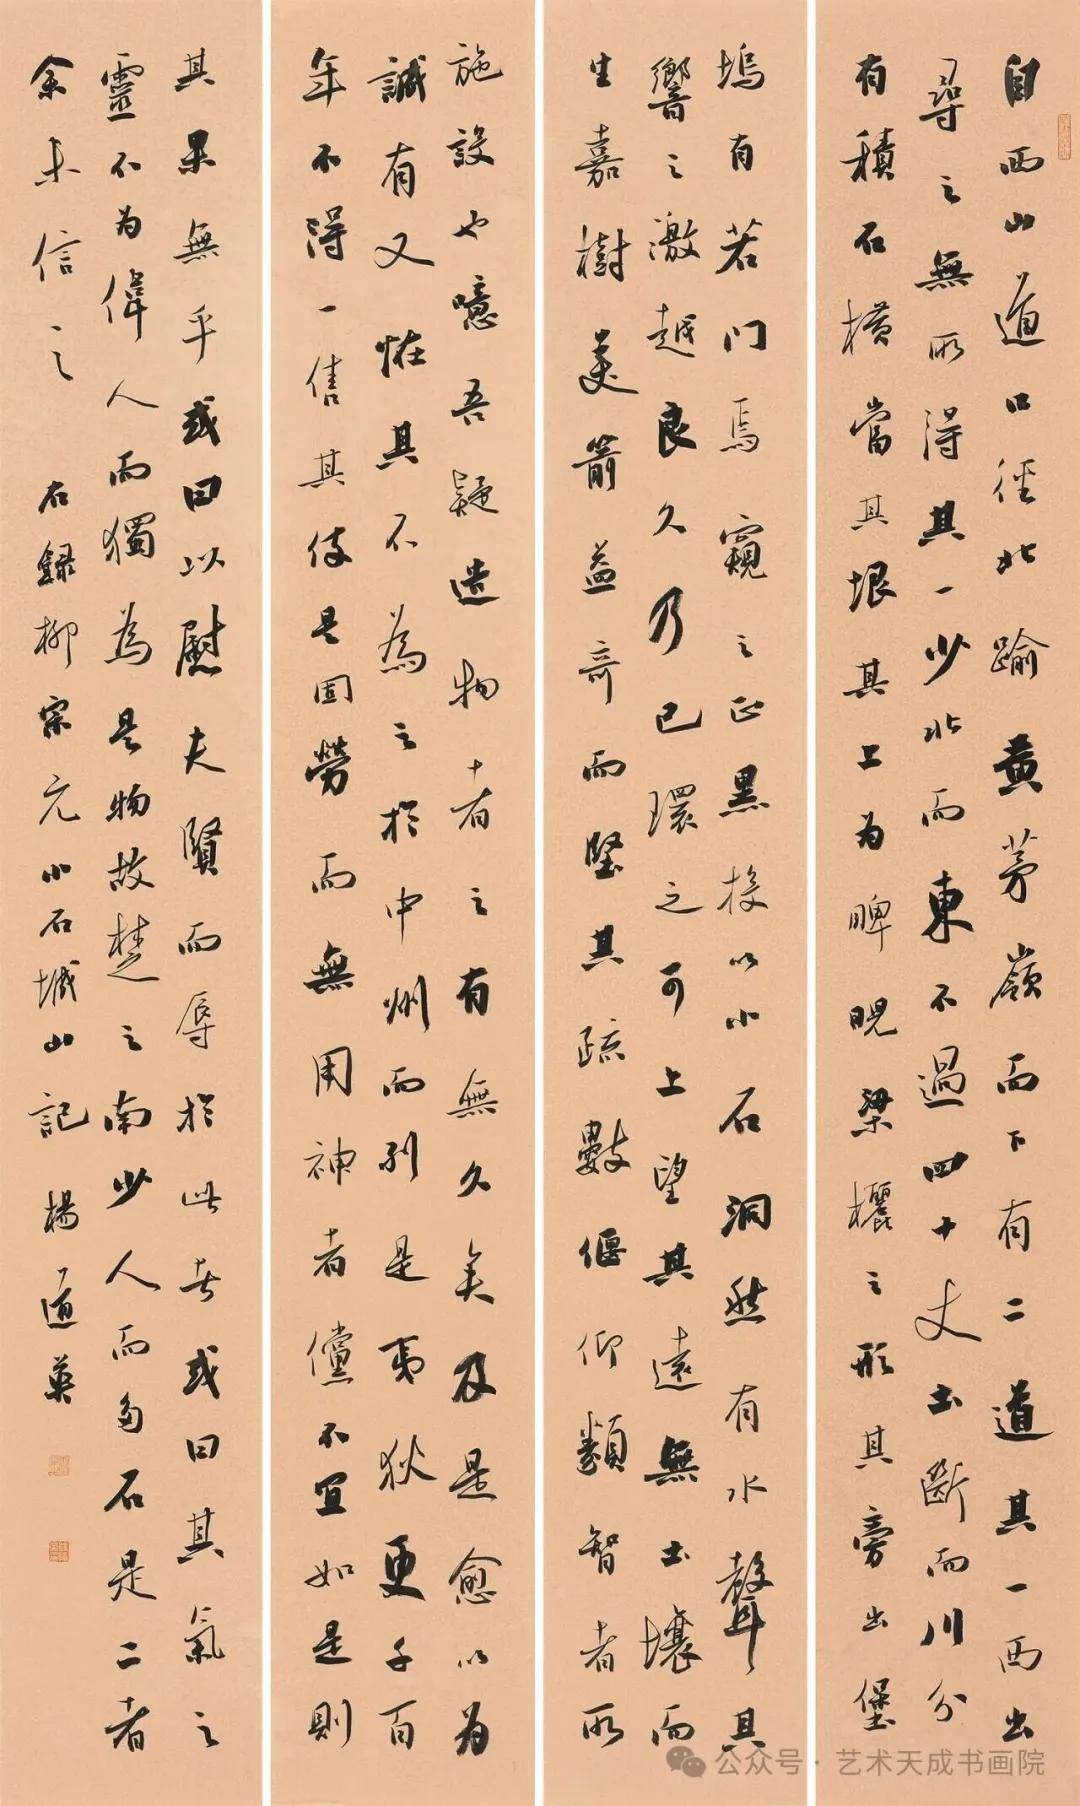 自西山道口徑北踰黃茅嶺而下有二道其一西出
尋之無所得其一少北而東不過四十丈土斷而川分
有積石橫當其垠其上為睥睨梁欐之形其旁出堡
塢有若門焉窺之正黑投以小石洞然有水聲其
響之激越良久乃已環之可上望甚遠無土壤而
生嘉樹美箭益奇而堅其疏數偃仰類智者所
施設也噫吾疑造物者之有無久矣及是愈以為
誠有又怪其不為之於中州而列是夷狄更千百
年不得一售其伎是固勞而無用神者儻不宜如是則
其果無乎或曰以慰夫賢而辱於此者或曰其氣之
靈不為偉人而獨為是物故楚之南少人而多石是二者
余未信之 右錄柳宗元小石城山記 楊道英
公众号·艺术天成书画院